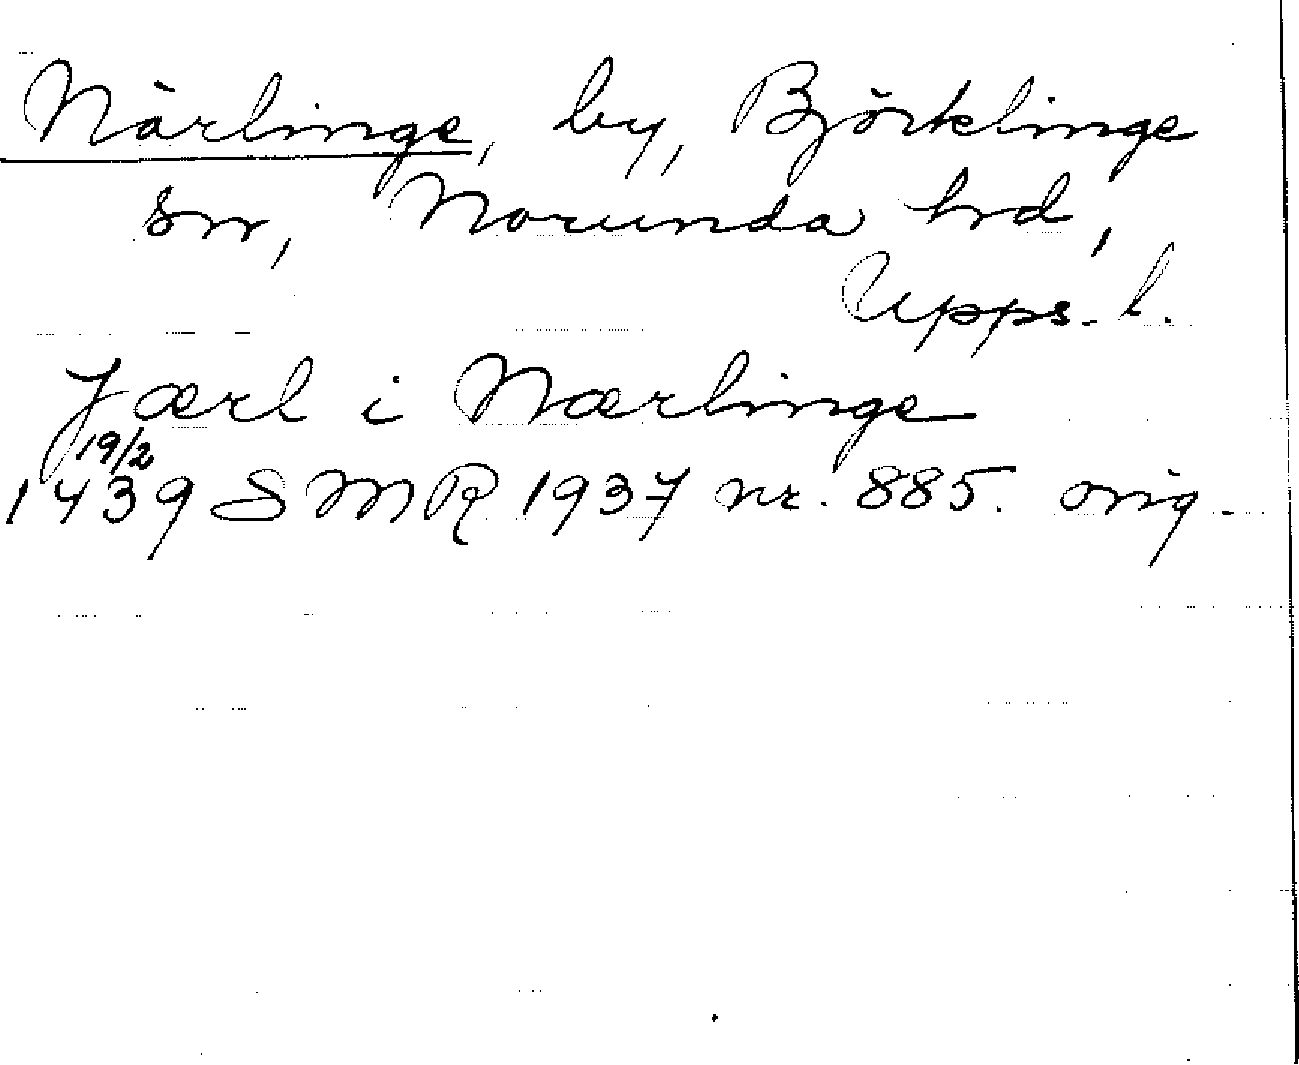 Närlinge, by, Björklinge
sn, Norunda hrd,
Upps. l.
Jærl i Nærlinge
19/2
1439 SMR 1937 nr. 885. orig.